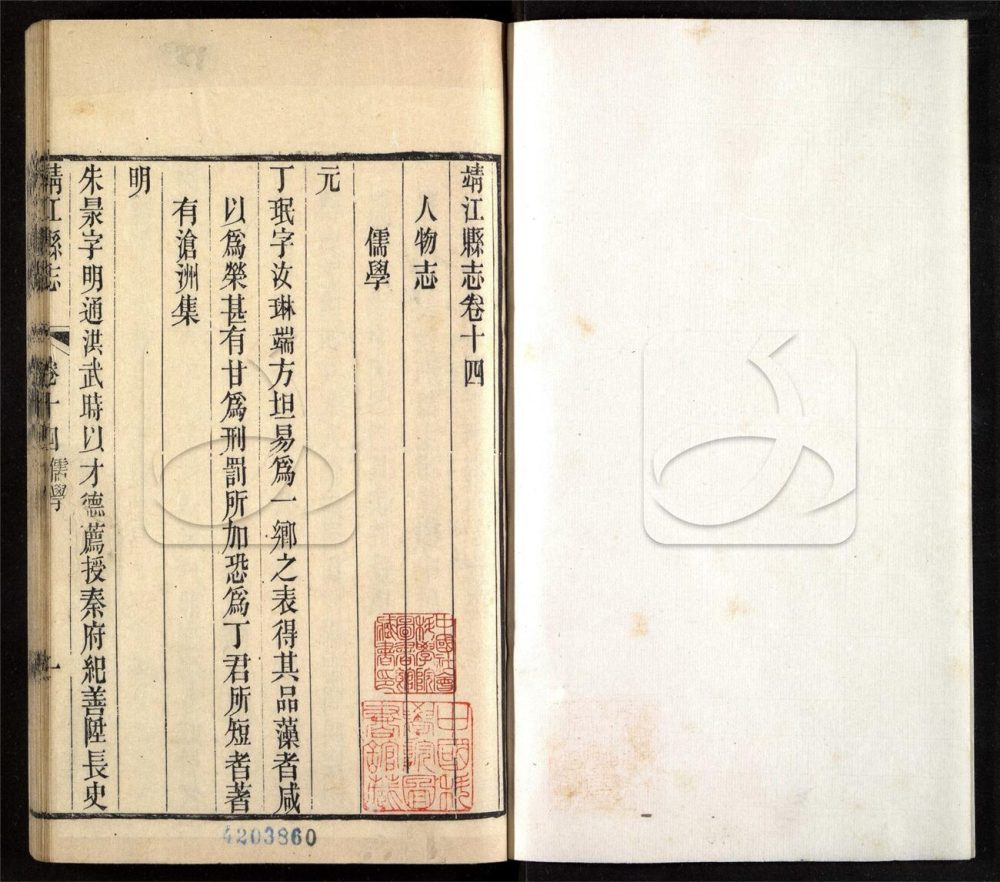 靖江縣志卷十四
人物志
儒學
元
丁珉字汝琳端方坦易爲一鄉之表得其品藻者咸
以爲榮甚有甘爲刑罰所加恐爲丁君所短者著
有滄洲集
明
朱泉字明通洪武時以才德薦授秦府紀善陞長史
靖江縣志 卷十四 儒學 一
中國社會科學院圖書館藏書印
中國科學院圖書館藏
4203860